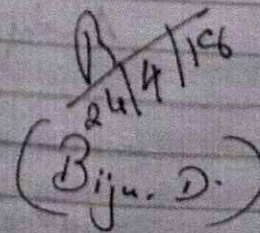 B
24/4/18
(Biju. D.)